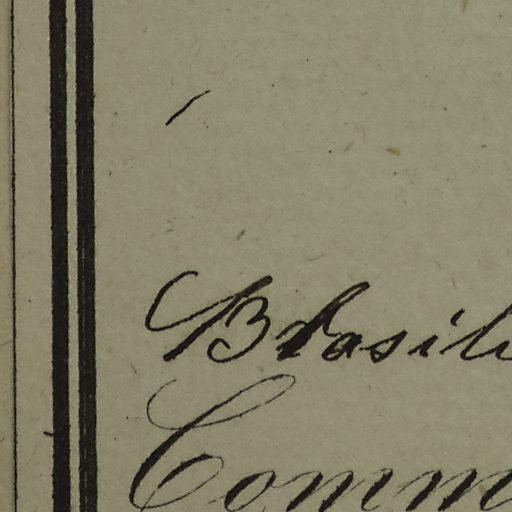 Brasili
Comm